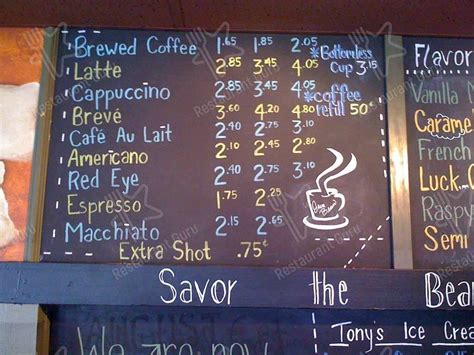 Brewed Coffee 1.65 1.85 2.05
Latte 2.85 3.45 4.05
Cappuccino 2.85 3.45 4.05
Brevé 3.60 4.20 4.80
Café Au Lait 2.40 2.75 3.10
Americano 2.40 2.75 3.10
Red Eye 2.40 2.75 3.10
Espresso 1.75 2.25
Macchiato 2.15 2.65
Extra Shot .75¢
*Bottomless
Cup 3.15
*coffee
refill 50¢
Flavor
Vanilla
Carame
French
Luck
Raspy
Semi
Savor the Bea
Tony's Ice Crea
We are now
Restaurant Guru